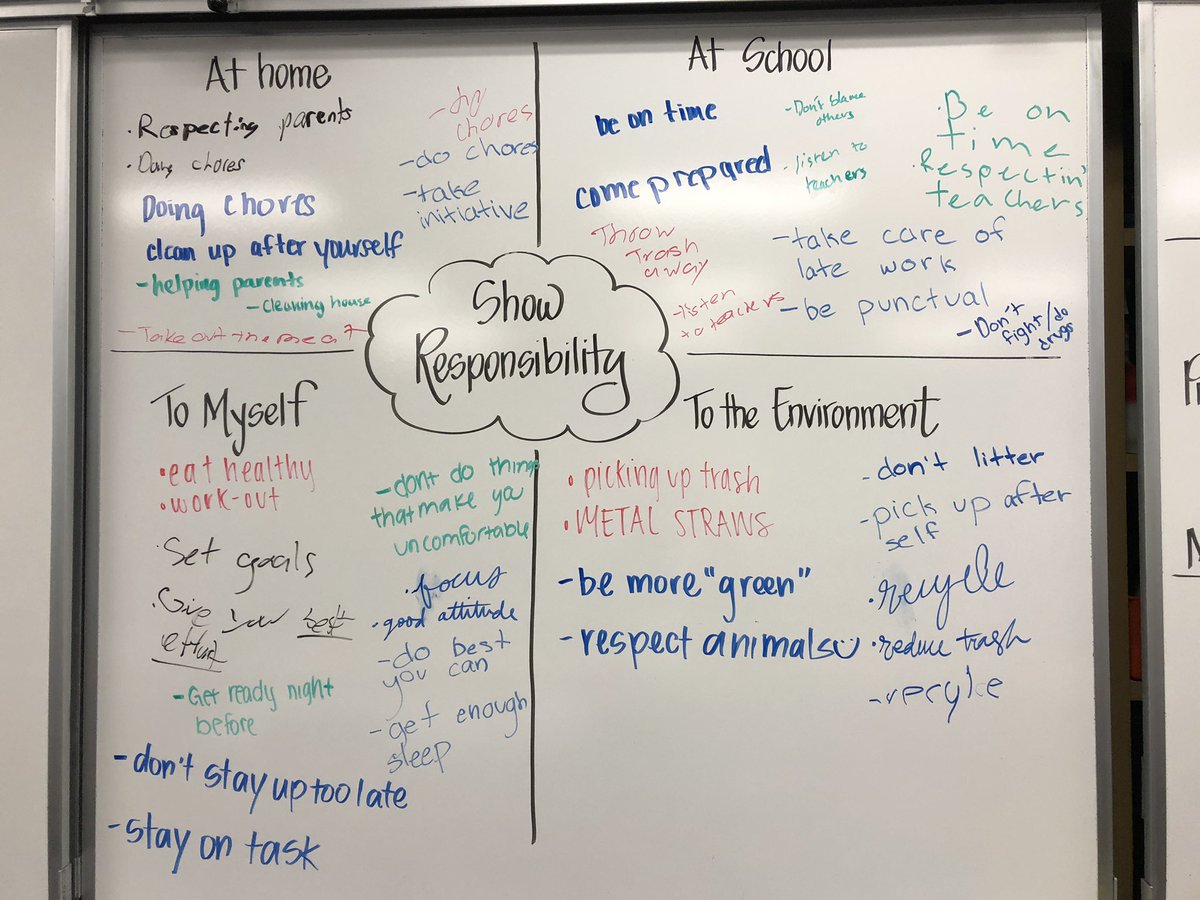 At home
· Respecting parents
· Doing chores
Doing chores
clean up after yourself
- helping parents
- Cleaning house
- Take out the
chores
- do chores
- take
initiative
At School
be on time
come prepared
Throw
Trash
away
- listen
to teachers
- Don't blame
others
- listen to
teachers
· Be on
time
· Respectin'
teachers
- take care of
late work
- be punctual
- Don't
fight/do
drugs
Show
Responsibility
To Myself
· eat healthy
· work-out
· Set goals
· Give your best
effort
- Get ready night
before
- don't stay up too late
- stay on task
- dont do things
that make you
uncomfortable
· focus
· good attitude
- do best
you can
- get enough
sleep
To the Environment
· picking up trash
· METAL STRAWS
- be more "green"
- respect animals
- don't litter
- pick up after
self
· recycle
· reduce trash
- recycle